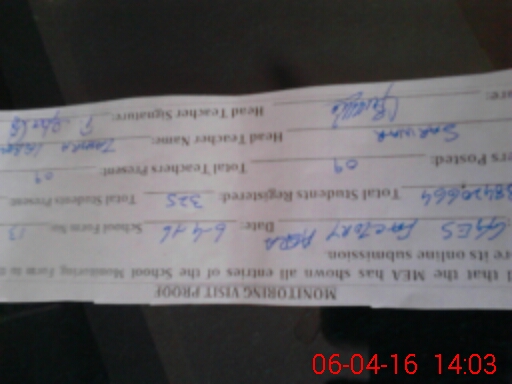 MONITORING VISIT PROOF
d that the MEA has shown all entries of the School Monitoring Form to
re its online submission.
GGES FACTORY AREA Date: 6-4-16 School Form No. 13
38420664 Total Students Registered: 325 Total Students Present:
ers Posted: 09 Total Teachers Present: 09
SARWAR Head Teacher Name:
ure: Head Teacher Signature:
06-04-16 14:03